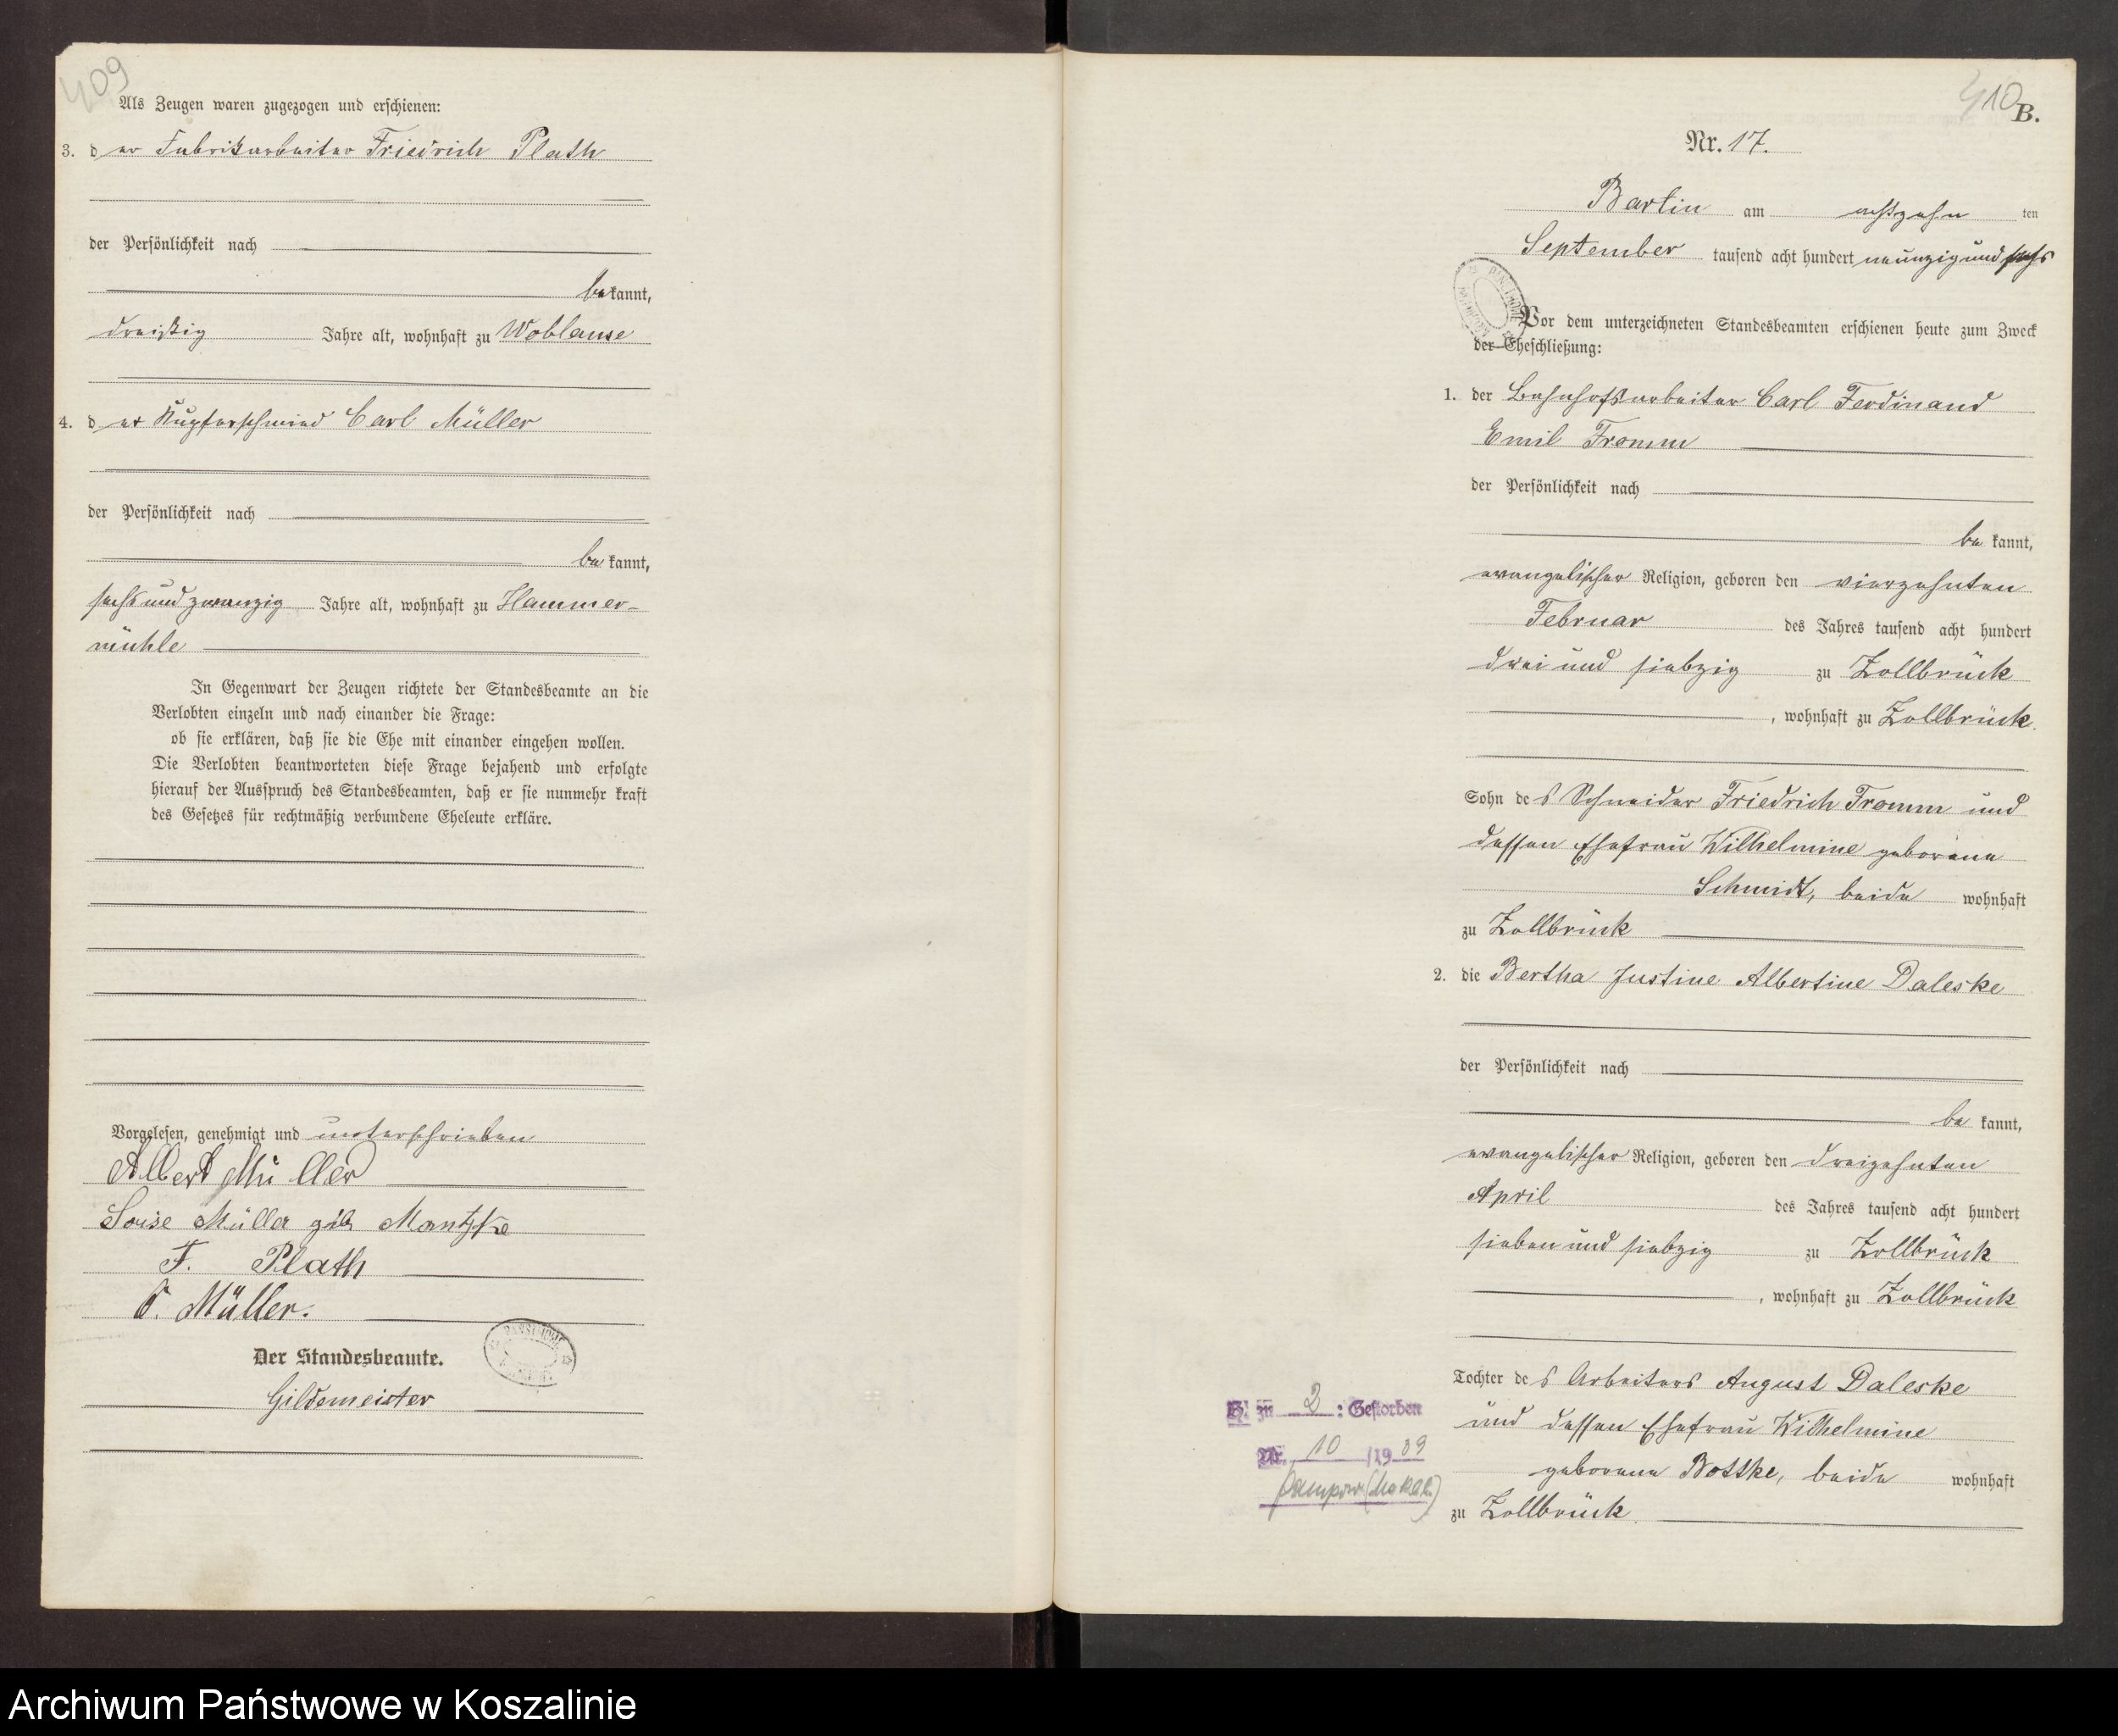 409
Als Zeugen waren zugezogen und erschienen:
3. der Fabrikarbeiter Friedrich Plath
der Persönlichkeit nach
bekannt,
dreißig Jahre alt, wohnhaft zu Woblanse
4. der Kupferschmied Carl Müller
der Persönlichkeit nach
bekannt,
sechs und zwanzig Jahre alt, wohnhaft zu Hammer-
mühle
In Gegenwart der Zeugen richtete der Standesbeamte an die
Verlobten einzeln und nach einander die Frage:
ob sie erklären, daß sie die Ehe mit einander eingehen wollen.
Die Verlobten beantworteten diese Frage bejahend und erfolgte
hierauf der Ausspruch des Standesbeamten, daß er sie nunmehr kraft
des Gesetzes für rechtmäßig verbundene Eheleute erkläre.
Vorgelesen, genehmigt und unterschrieben
Albert Müller
Loise Müller geb Mantzke
F. Plath
C. Müller.
Der Standesbeamte.
Gildemeister
410
B.
Nr. 17.
Bartin am achtzehn ten
September tausend acht hundert neunzig und sechs
Vor dem unterzeichneten Standesbeamten erschienen heute zum Zweck
der Eheschließung:
1. der Bahnhofsarbeiter Carl Ferdinand
Emil Fromm
der Persönlichkeit nach
be kannt,
evangelischer Religion, geboren den vierzehnten
Februar des Jahres tausend acht hundert
drei und siebzig zu Zollbrück
, wohnhaft zu Zollbrück.
Sohn des Schneider Friedrich Fromm und
dessen Ehefrau Wilhelmine geborene
Schmidt, beide wohnhaft
zu Zollbrück
2. die Bertha Justine Albertine Daleske
der Persönlichkeit nach
be kannt,
evangelischer Religion, geboren den dreizehnten
April des Jahres tausend acht hundert
sieben und siebzig zu Zollbrück
, wohnhaft zu Zollbrück
Tochter des Arbeiters August Daleske
und dessen Ehefrau Wilhelmine
geborene Bottke, beide wohnhaft
zu Zollbrück.
zu 2 : Gestorben
Nr. 10 /19 39
Archiwum Państwowe w Koszalinie